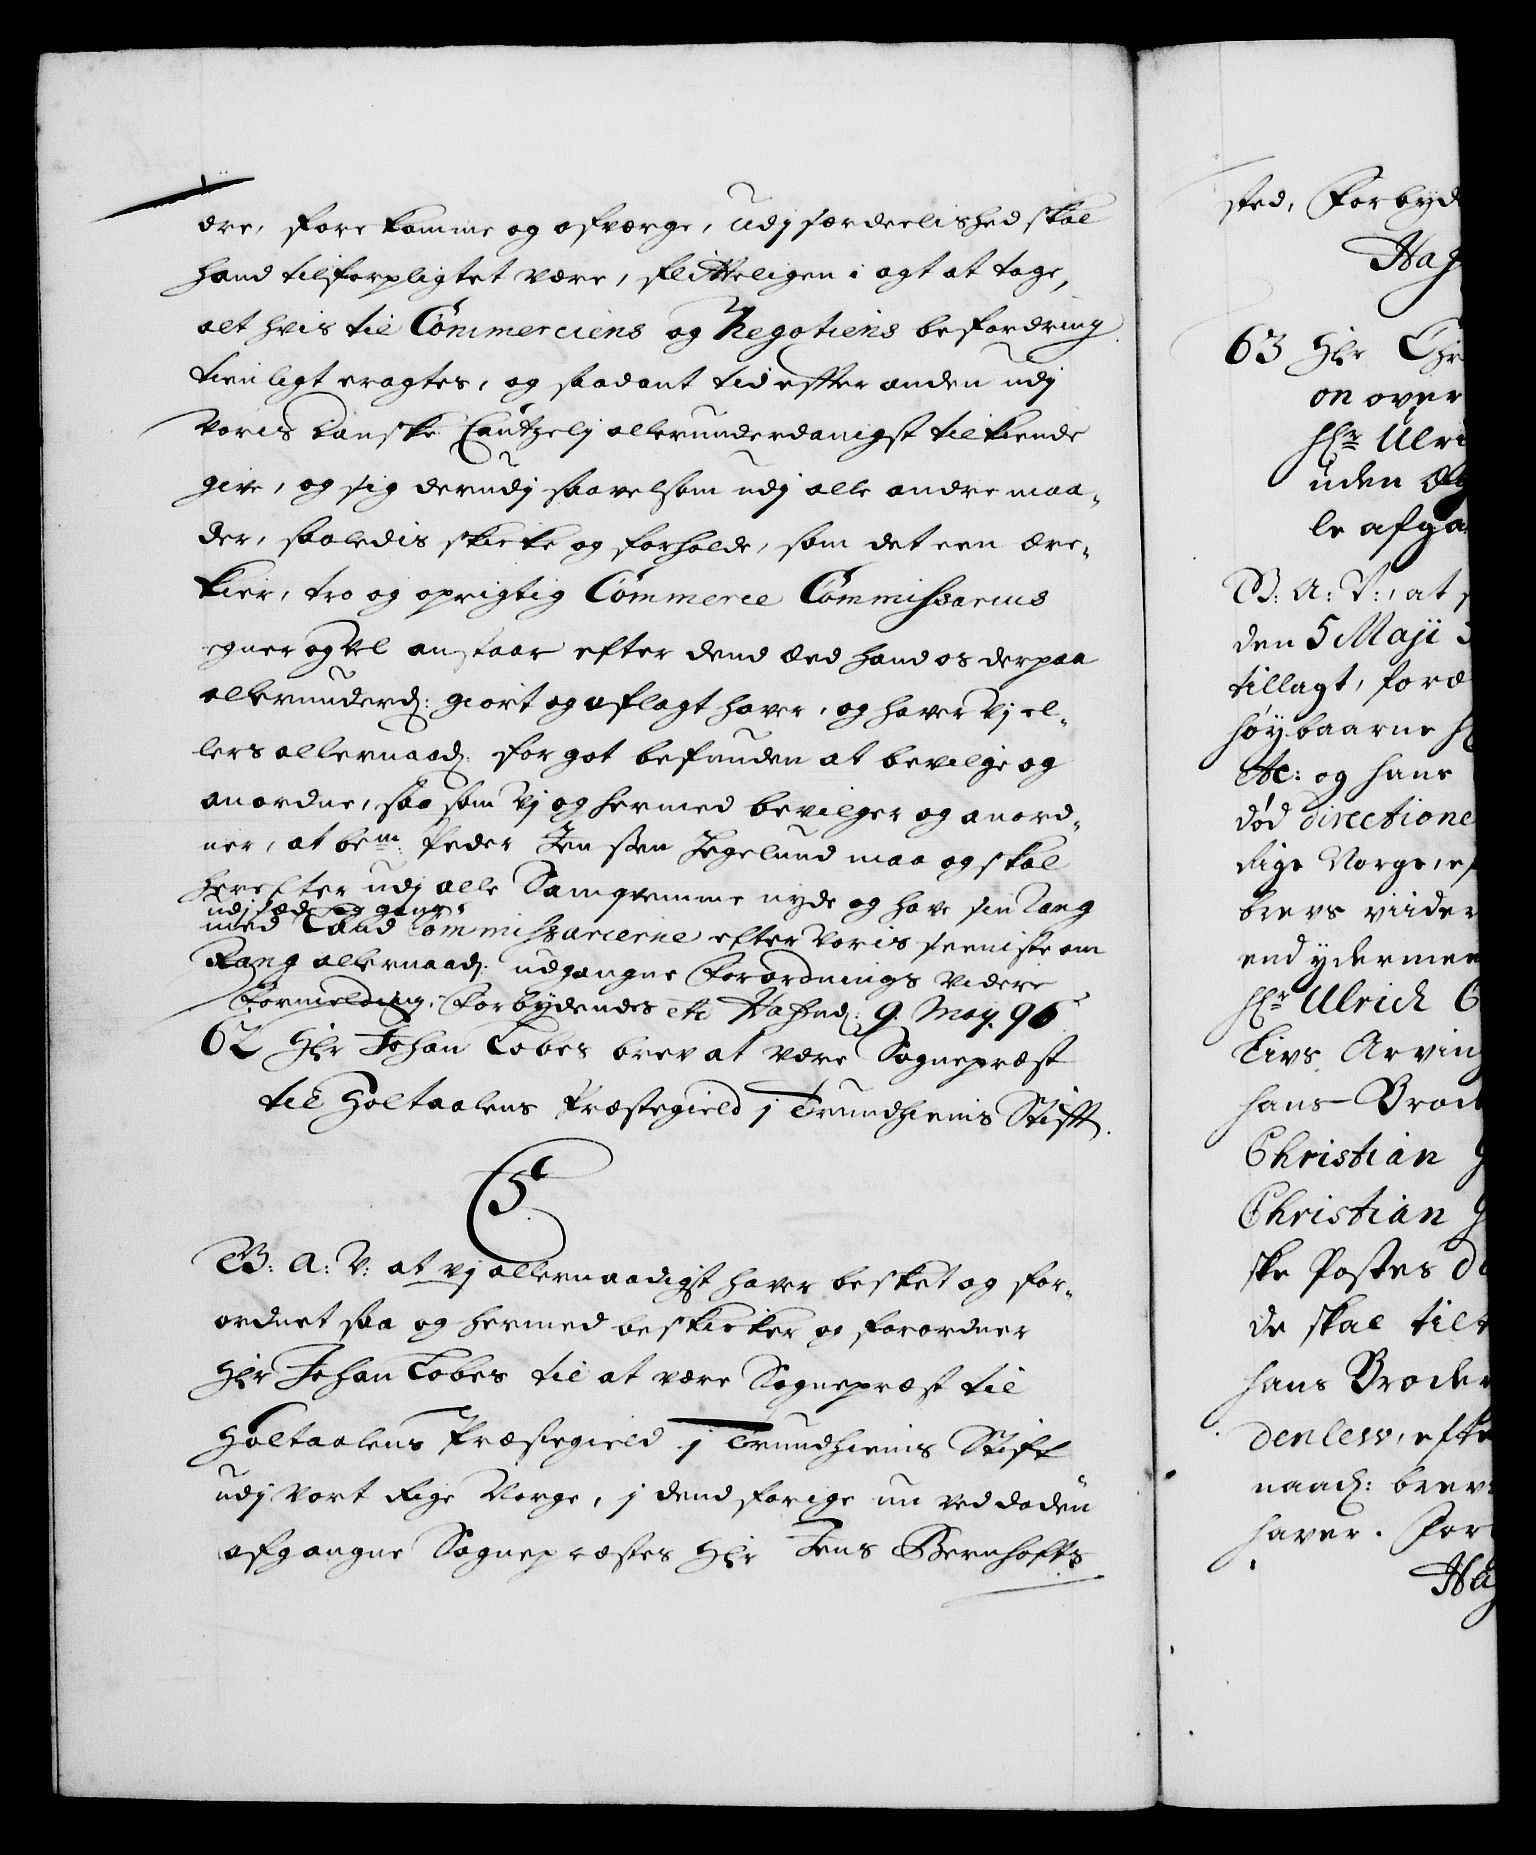 dre, fore komme og afværge, udj særdeelished skal
hand tilforpligtet være, flitteligen i agt at tage,
alt hvis til Commerciens og Negotiens befordring
tienligt eragtes, og saadant tid effter anden udj
Voris danske Cantzelj allerunderdanigst tilkiende
give, og sig derudj saavelsom udj alle andre maa-
der, saaledis skicke og forholde, som det een ære-
kier, tro og oprigtig Commerce Commissarius
egner og vel anstaar efter dend æed hand os derpaa
allerunderd: giort og aflagt haver, og haver Vj el-
lers allernaad: for got befunden at bevilge og
anordne, saa som Vj og hermed bevilger og anord-
ner, at bem: Peder Jenssen Hegelund maa og skal
herefter udj alle Samqvemme nyde og have sin Rang
udj sæde og gang
med Land Commissarierne efter Voris seeniste om
Rang allernaad: udgangne Forordnings videre
Formelding, Forbydendes etc Hafnd: 9. May. 96
62 Hr Johan Lobes brev at være Sognepræst
til Holtaalens Præstegield j Trundhiems Stifft.
C5
W: A: V: at vj allernaadigst haver besket og for-
ordnet saa og hermed beskicker og forordner
Hr Johan Lobes til at være Sognepræst til
Holtaalens Præstegield j Trundhiems Stift
udj Vort Rige Norge, j dend forige nu ved døden
afgangne Sognepræstes Hr Jens Bernhofts
sted, Forbyd
Haf
63 Hr Chr
on over
Hr Ulri
uden
le afga
W: A: V:, at
den 5 Maji
tillagt, foræ
høybaarne
etc: og hans
død directione
Rige Norge, ef
brevs viider
end ydermee
Hr Ulrich G
Livs Arving
hans Brod
Christian G
Christian G
ske Postes d
de skal til
hans Broder
denlew, efte
naad: brev
haver. For
Haf